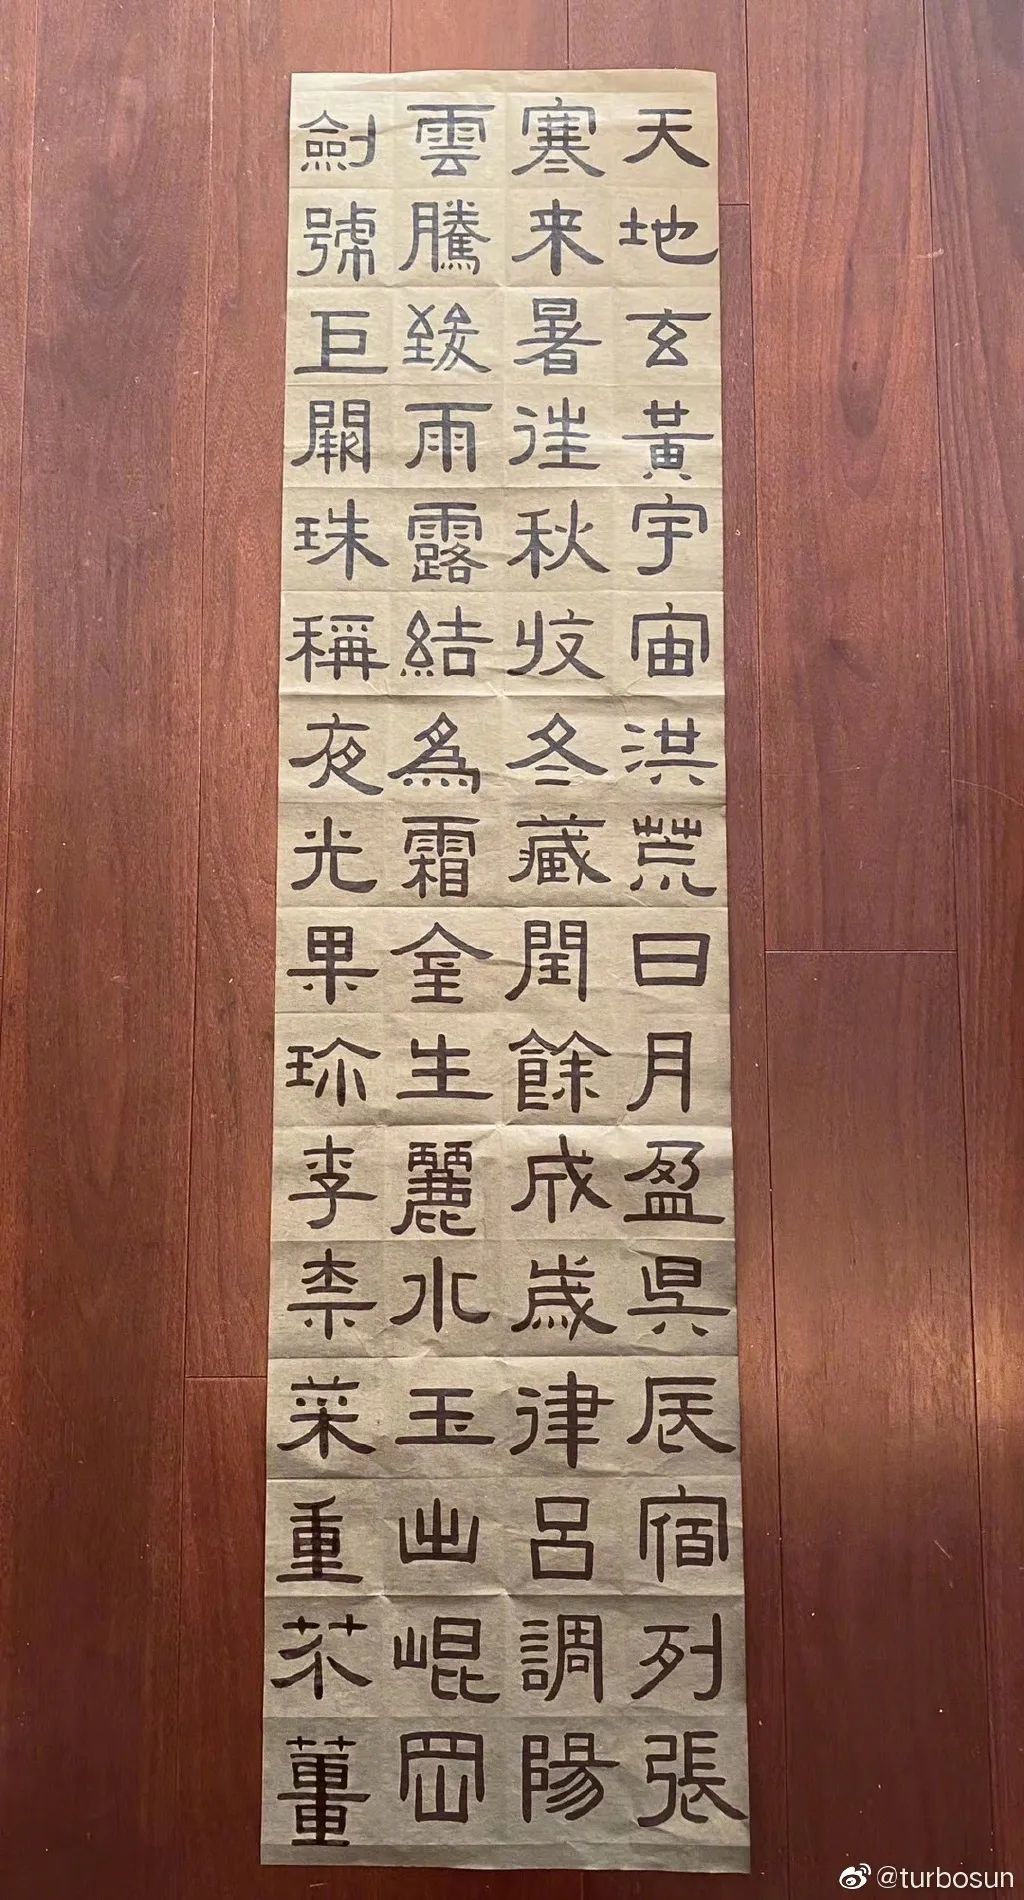 天地玄黃宇宙洪荒日月盈昃辰宿列張
寒来暑往秋收冬藏閏餘成歲律呂調陽
雲騰致雨露結為霜金生麗水玉出崐岡
劍號巨闕珠稱夜光果珎李柰菜重芥薑
@turbosun